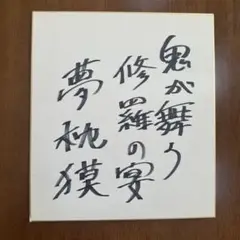 鬼が舞う
修羅の宴
夢枕獏